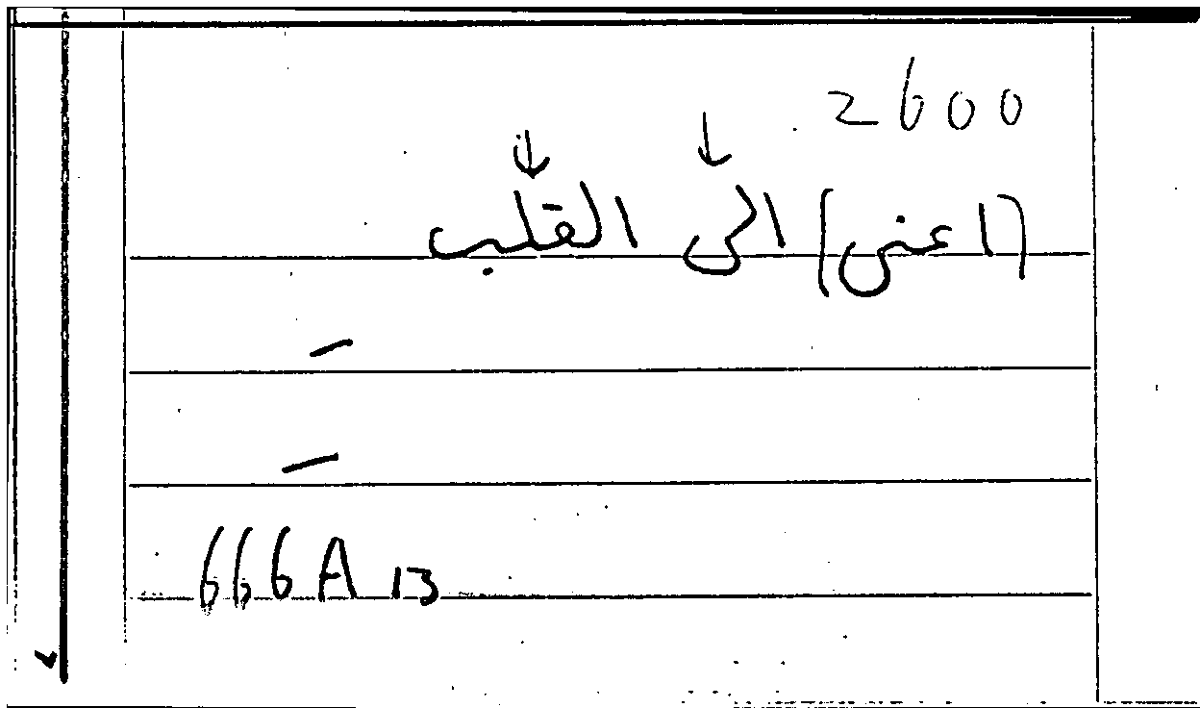 2600
(اعنى) الى القلب
–
–
666A 13